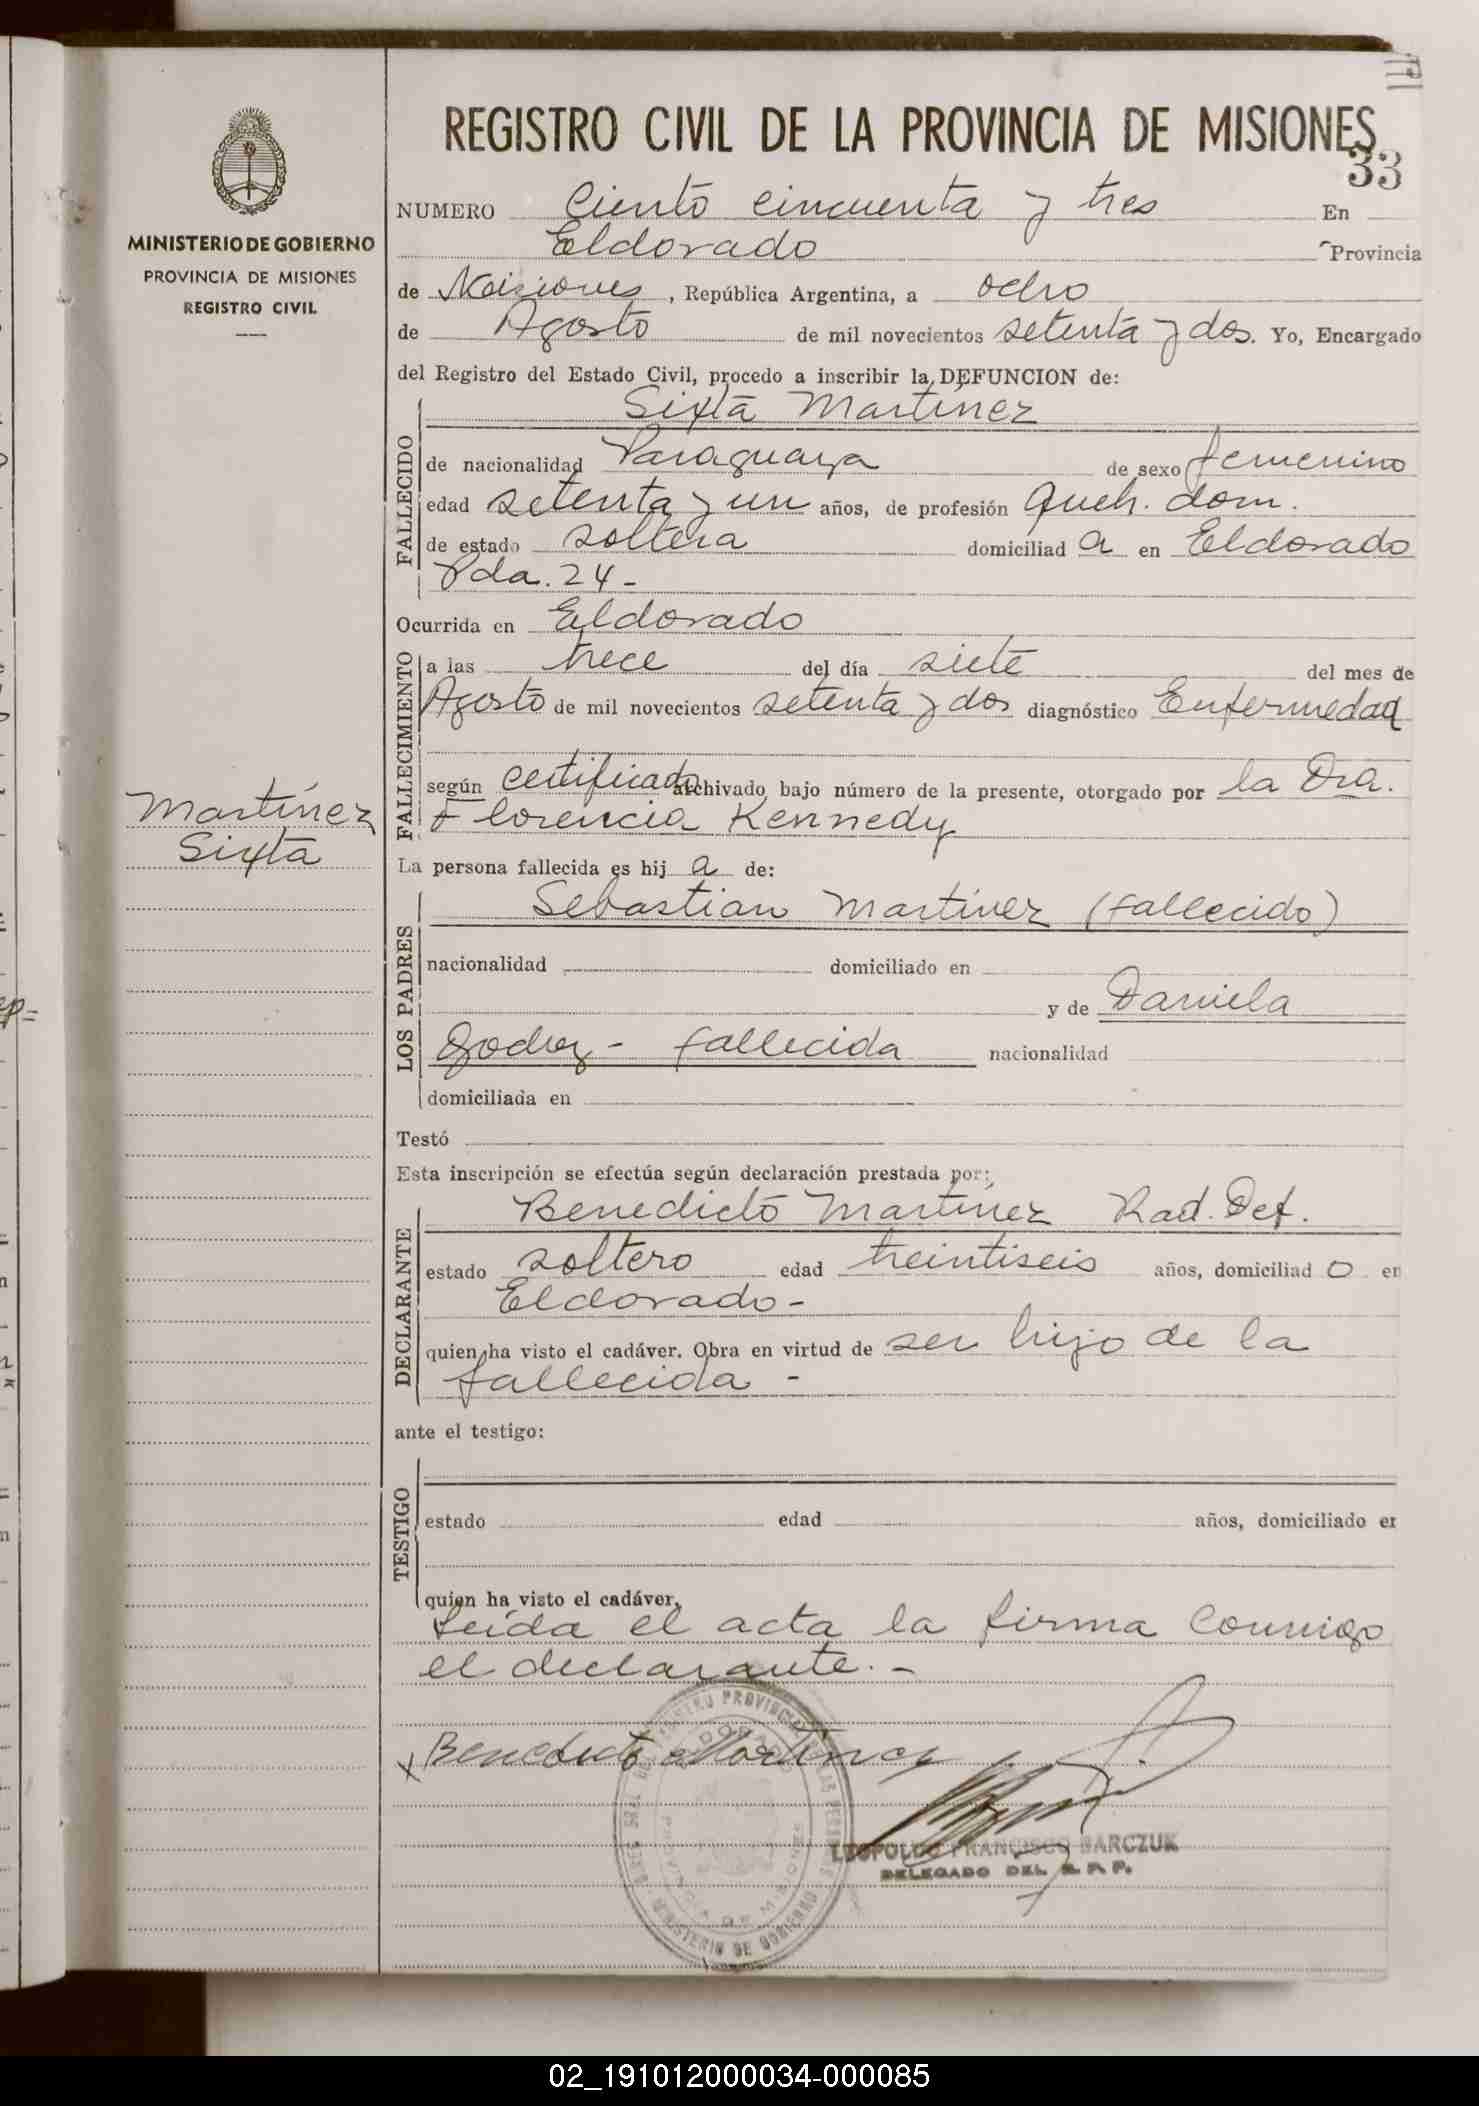 REGISTRO CIVIL DE LA PROVINCIA DE MISIONES
33
MINISTERIO DE GOBIERNO
PROVINCIA DE MISIONES
REGISTRO CIVIL
NUMERO Ciento cincuenta y tres En
Eldorado Provincia
de Misiones, República Argentina, a ocho
de Agosto de mil novecientos setenta y dos. Yo, Encargado
del Registro del Estado Civil, procedo a inscribir la DEFUNCION de:
Sixta Martinez
FALLECIDO
de nacionalidad Paraguaya de sexo femenino
edad setenta y un años, de profesión Queh. dom.
de estado soltera domiciliad a en Eldorado
Pda. 24-
Ocurrida en Eldorado
FALLECIMIENTO
a las trece del día siete del mes de
Agosto de mil novecientos setenta y dos diagnóstico Enfermedad
según certificado archivado bajo número de la presente, otorgado por la Dra.
Florencia Kennedy
Martínez
Sixta
La persona fallecida es hij a de:
LOS PADRES
Sebastian Martínez (fallecido)
nacionalidad domiciliado en
y de Daniela
Godoy - fallecida nacionalidad
domiciliada en
Testó
Esta inscripción se efectúa según declaración prestada por:
DECLARANTE
Benedicto Martinez Rad. Def.
estado soltero edad treintiseis años, domiciliad o en
Eldorado-
quien ha visto el cadáver. Obra en virtud de ser hijo de la
fallecida -
ante el testigo:
TESTIGO
estado edad años, domiciliado en
quien ha visto el cadáver.
Leída el acta la firma conmigo
el declarante.-
Benedicto Martinez
LEOPOLDO FRANCISCO BARCZUK
DELEGADO DEL R. P. P.
ELDORADO
PROVINCIA DE MISIONES
MINISTERIO DE GOBIERNO
02_191012000034-000085